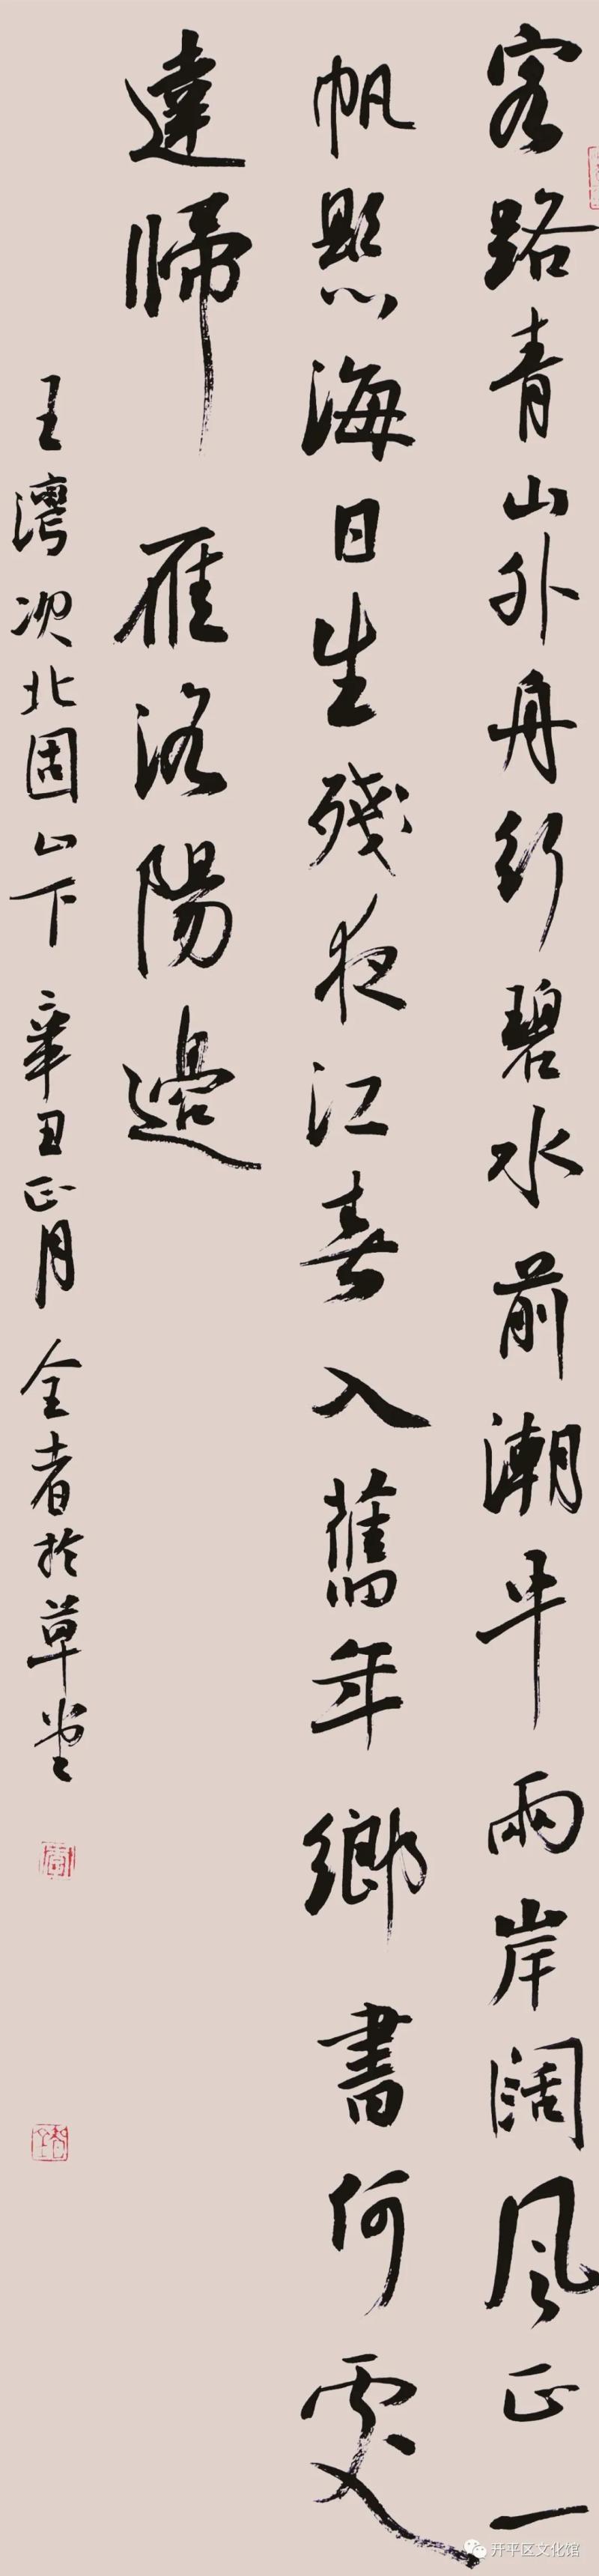 客路青山外舟行碧水前潮平兩岸闊風正一
帆懸海日生殘夜江春入舊年鄉書何處
達歸雁洛陽邊
王灣次北固山下 辛丑正月 全者於草堂
开平区文化馆